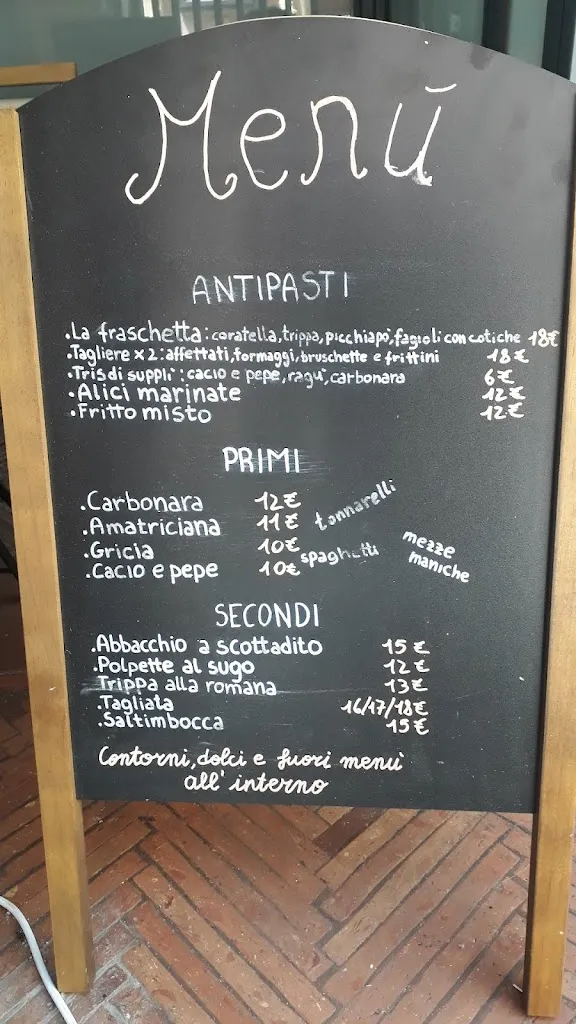 Menū
ANTIPASTI
.La fraschetta: coratella, trippa, picchiapò, fagioli con cotiche 18€
.Tagliere x2: affettati, formaggi, bruschette e frittini 18€
.Tris di supplì: cacio e pepe, ragù, carbonara 6€
.Alici marinate 12€
.Fritto misto 12€
PRIMI
.Carbonara 12€
.Amatriciana 11€ tonnarelli
.Gricia 10€
.Cacio e pepe 10€ spaghetti
mezze
maniche
SECONDI
.Abbacchio a scottadito 15€
.Polpette al sugo 12€
Trippa alla romana 13€
.Tagliata 16/17/18€
.Saltimbocca 15€
Contorni, dolci e fuori menù
all'interno